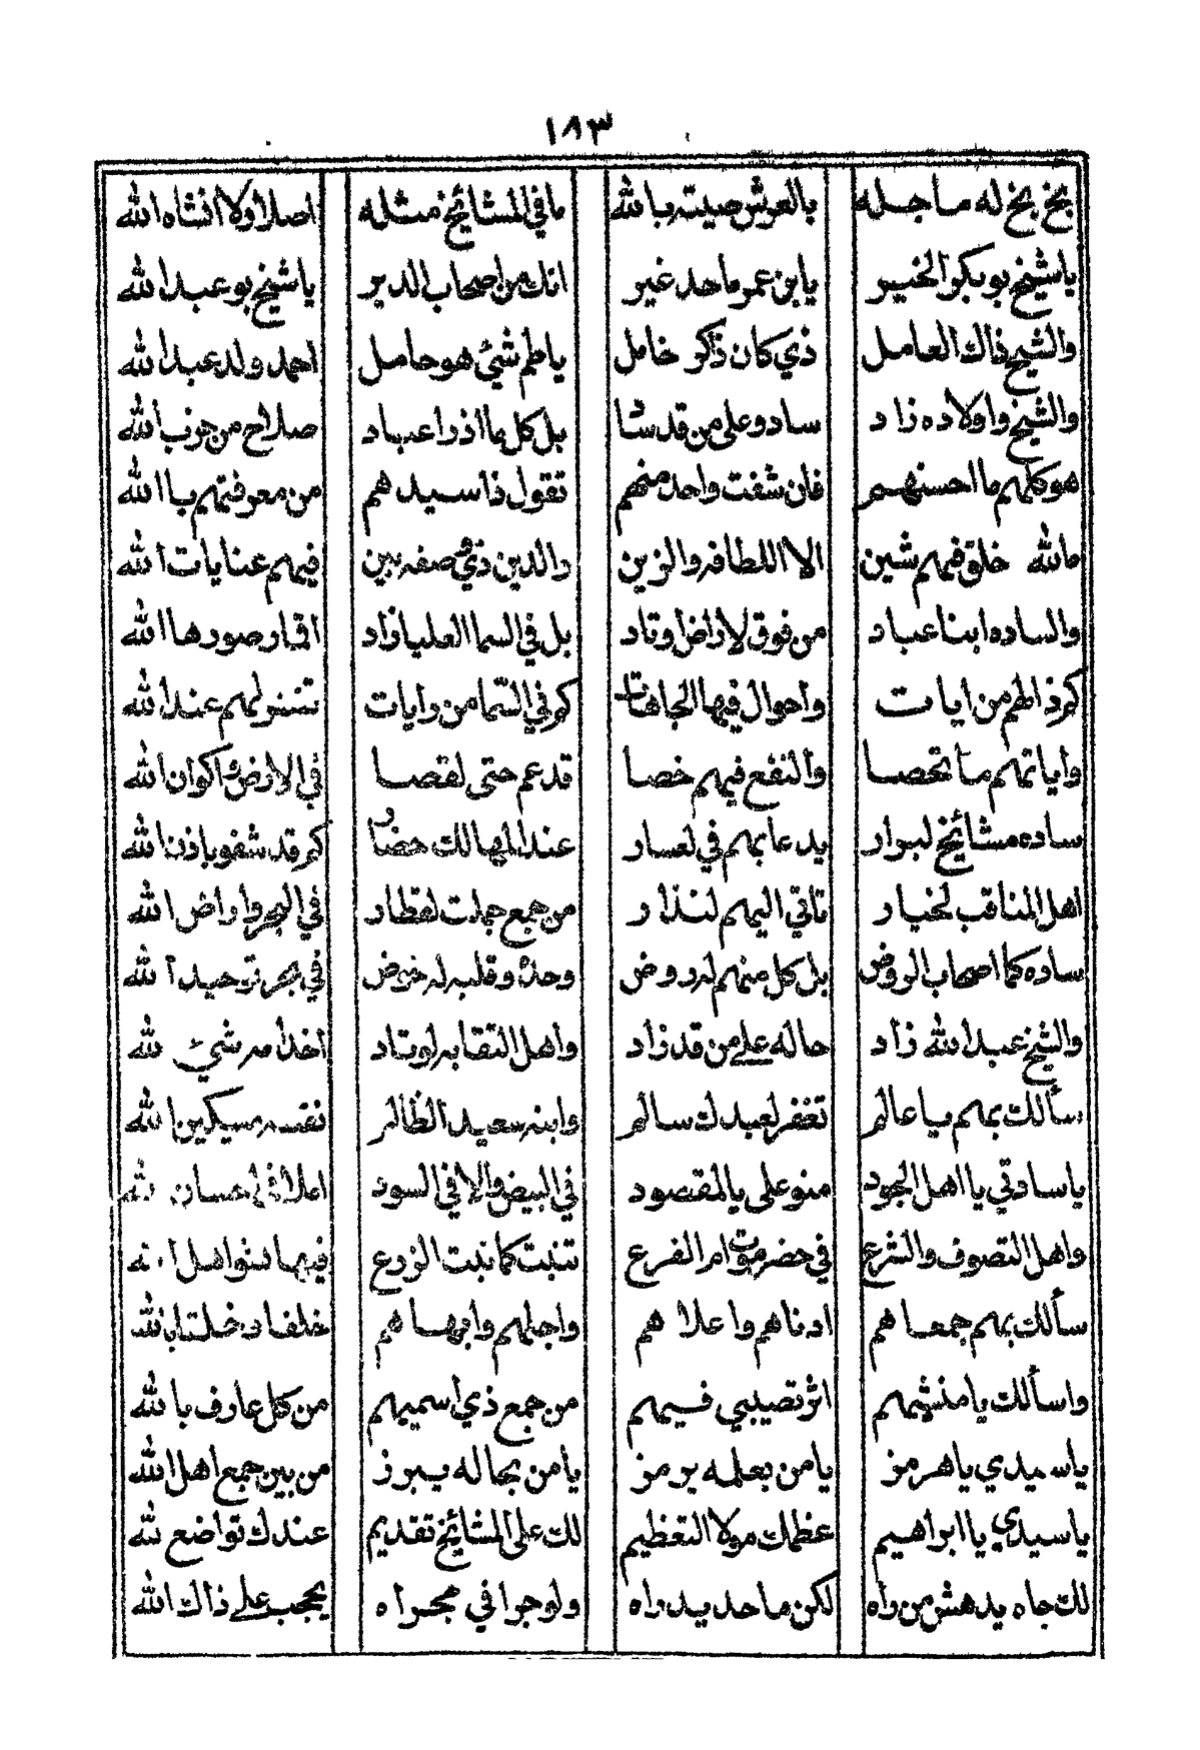 ١٨٣
بخ بخ له ما جله بالعرش صيته بالله ما في المشائخ مثله اصلا ولا انشاه الله
يا شيخ بو بكر الخير يا بن عمر ما حد غير انك من اصحاب الدير يا شيخ بو عبد الله
والشيخ ذاك العامل ذي كان ذكر خامل يا طم شيئ هو حامل احمد ولد عبد الله
والشيخ واولاده زاد سادو على من قد شا بل كل ما اذرا عباد صلاح من حزب الله
هو كلهم ما احسنهم فان شفت واحد منهم تقول ذا سيد هم من معرفتهم با الله
مالله خلق فيهم شين الا اللطافه والزين والدين ذي وصفه بين فيهم عنايات الله
والساده ابنا عباد من فوق لاراض اوتاد بل في السما العليا زاد اقمار صورها الله
كم ذا لهم من ايات واحوال فيها الجاهات كم في السما من رايات تننر لهم عند الله
واياتهم ما تحصا والنفع فيهم خصا قد عم حتى لقصا في الارض اكوان الله
ساده مشائخ لبرار يدعا بهم في لعسار عند المهالك حضار كم قد شفو باذن الله
اهل المناقب لخيار تاتي اليهم لنذار من جمع جهات لقطار في البحر واراض الله
ساده كما اصحاب الروض بل كل منهم له روض وحده وقلبه له خوض في بحر توحيد الله
والشيخ عبد الله زاد حاله على من قد زاد واهل النقابه لوتاد اخذ امر شيئ لله
سألك بهم يا عالم تغفر لعبدك سالم وابنه سعيد الظالم نفسه مسيكين الله
يا سادتي يا اهل الجود منو على بالمقصود في البيض والا في السود اهل احسان الله
واهل التصوف والشرع في حضرموت ام الفرع تنبت كما نبت الزرع فيها بنو اهل
سألك بهم جمعا هم ادناهم واعلا هم واجلهم وابها هم خلفا دخلت بالله
واسألك يا منشيهم اثر نصيبي فيهم من جمع ذي اسميهم من كل عارف بالله
يا سيدي يا هرمز يا من بعلمه يرمز يا من بحاله يبرز من بين جمع اهل الله
يا سيدي يا ابراهيم عظمك مولا التعظيم لك على المشائخ تقديم عندك تواضع لله
لك جاه يدهش من راه لكن ما حد يد راه ولو جرا في مجراه يجب على ذاك الله